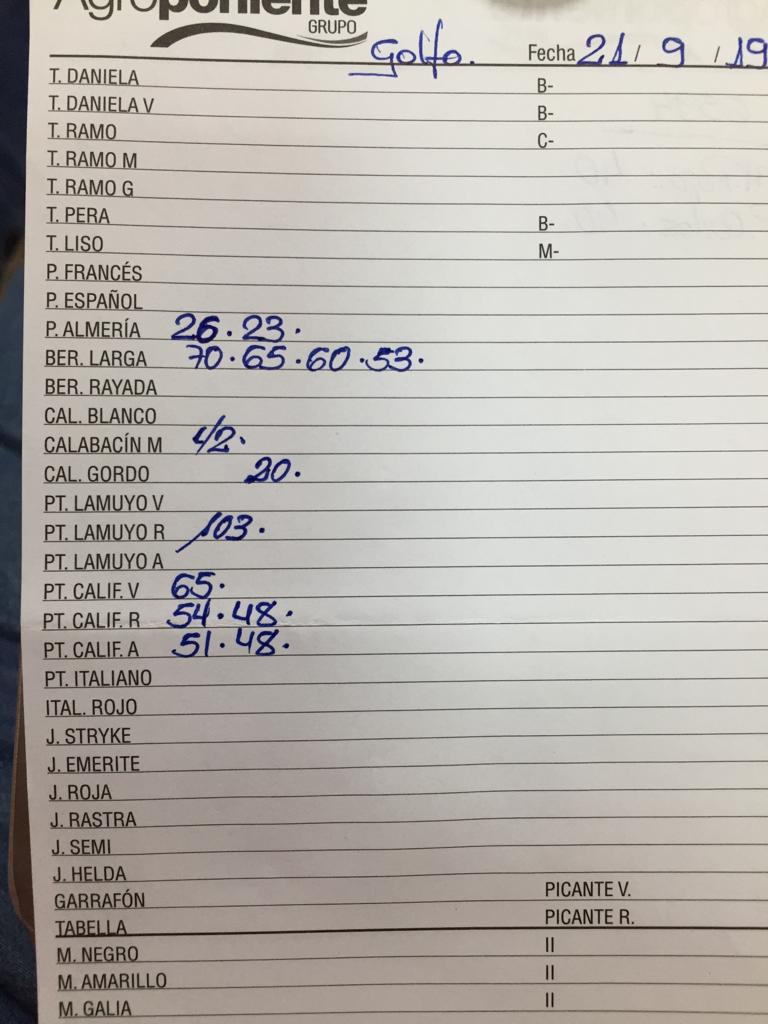 Agroponiente
GRUPO
Golfo. Fecha 21 / 9 / 19
T. DANIELA B-
T. DANIELA V B-
T. RAMO C-
T. RAMO M
T. RAMO G
T. PERA B-
T. LISO M-
P. FRANCÉS
P. ESPAÑOL
P. ALMERÍA 26. 23.
BER. LARGA 70. 65. 60. 53.
BER. RAYADA
CAL. BLANCO
CALABACÍN M 42.
CAL. GORDO 20.
PT. LAMUYO V
PT. LAMUYO R 103.
PT. LAMUYO A
PT. CALIF. V 65.
PT. CALIF. R 54. 48.
PT. CALIF. A 51. 48.
PT. ITALIANO
ITAL. ROJO
J. STRYKE
J. EMERITE
J. ROJA
J. RASTRA
J. SEMI
J. HELDA
GARRAFÓN PICANTE V.
TABELLA PICANTE R.
M. NEGRO II
M. AMARILLO II
M. GALIA II